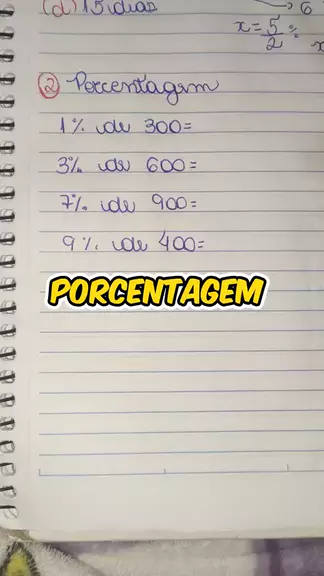 (d) 15 dias
6
x = 5/2 %
x
② Porcentagem
1% de 300=
3% de 600=
7% de 900=
9% de 400=
PORCENTAGEM